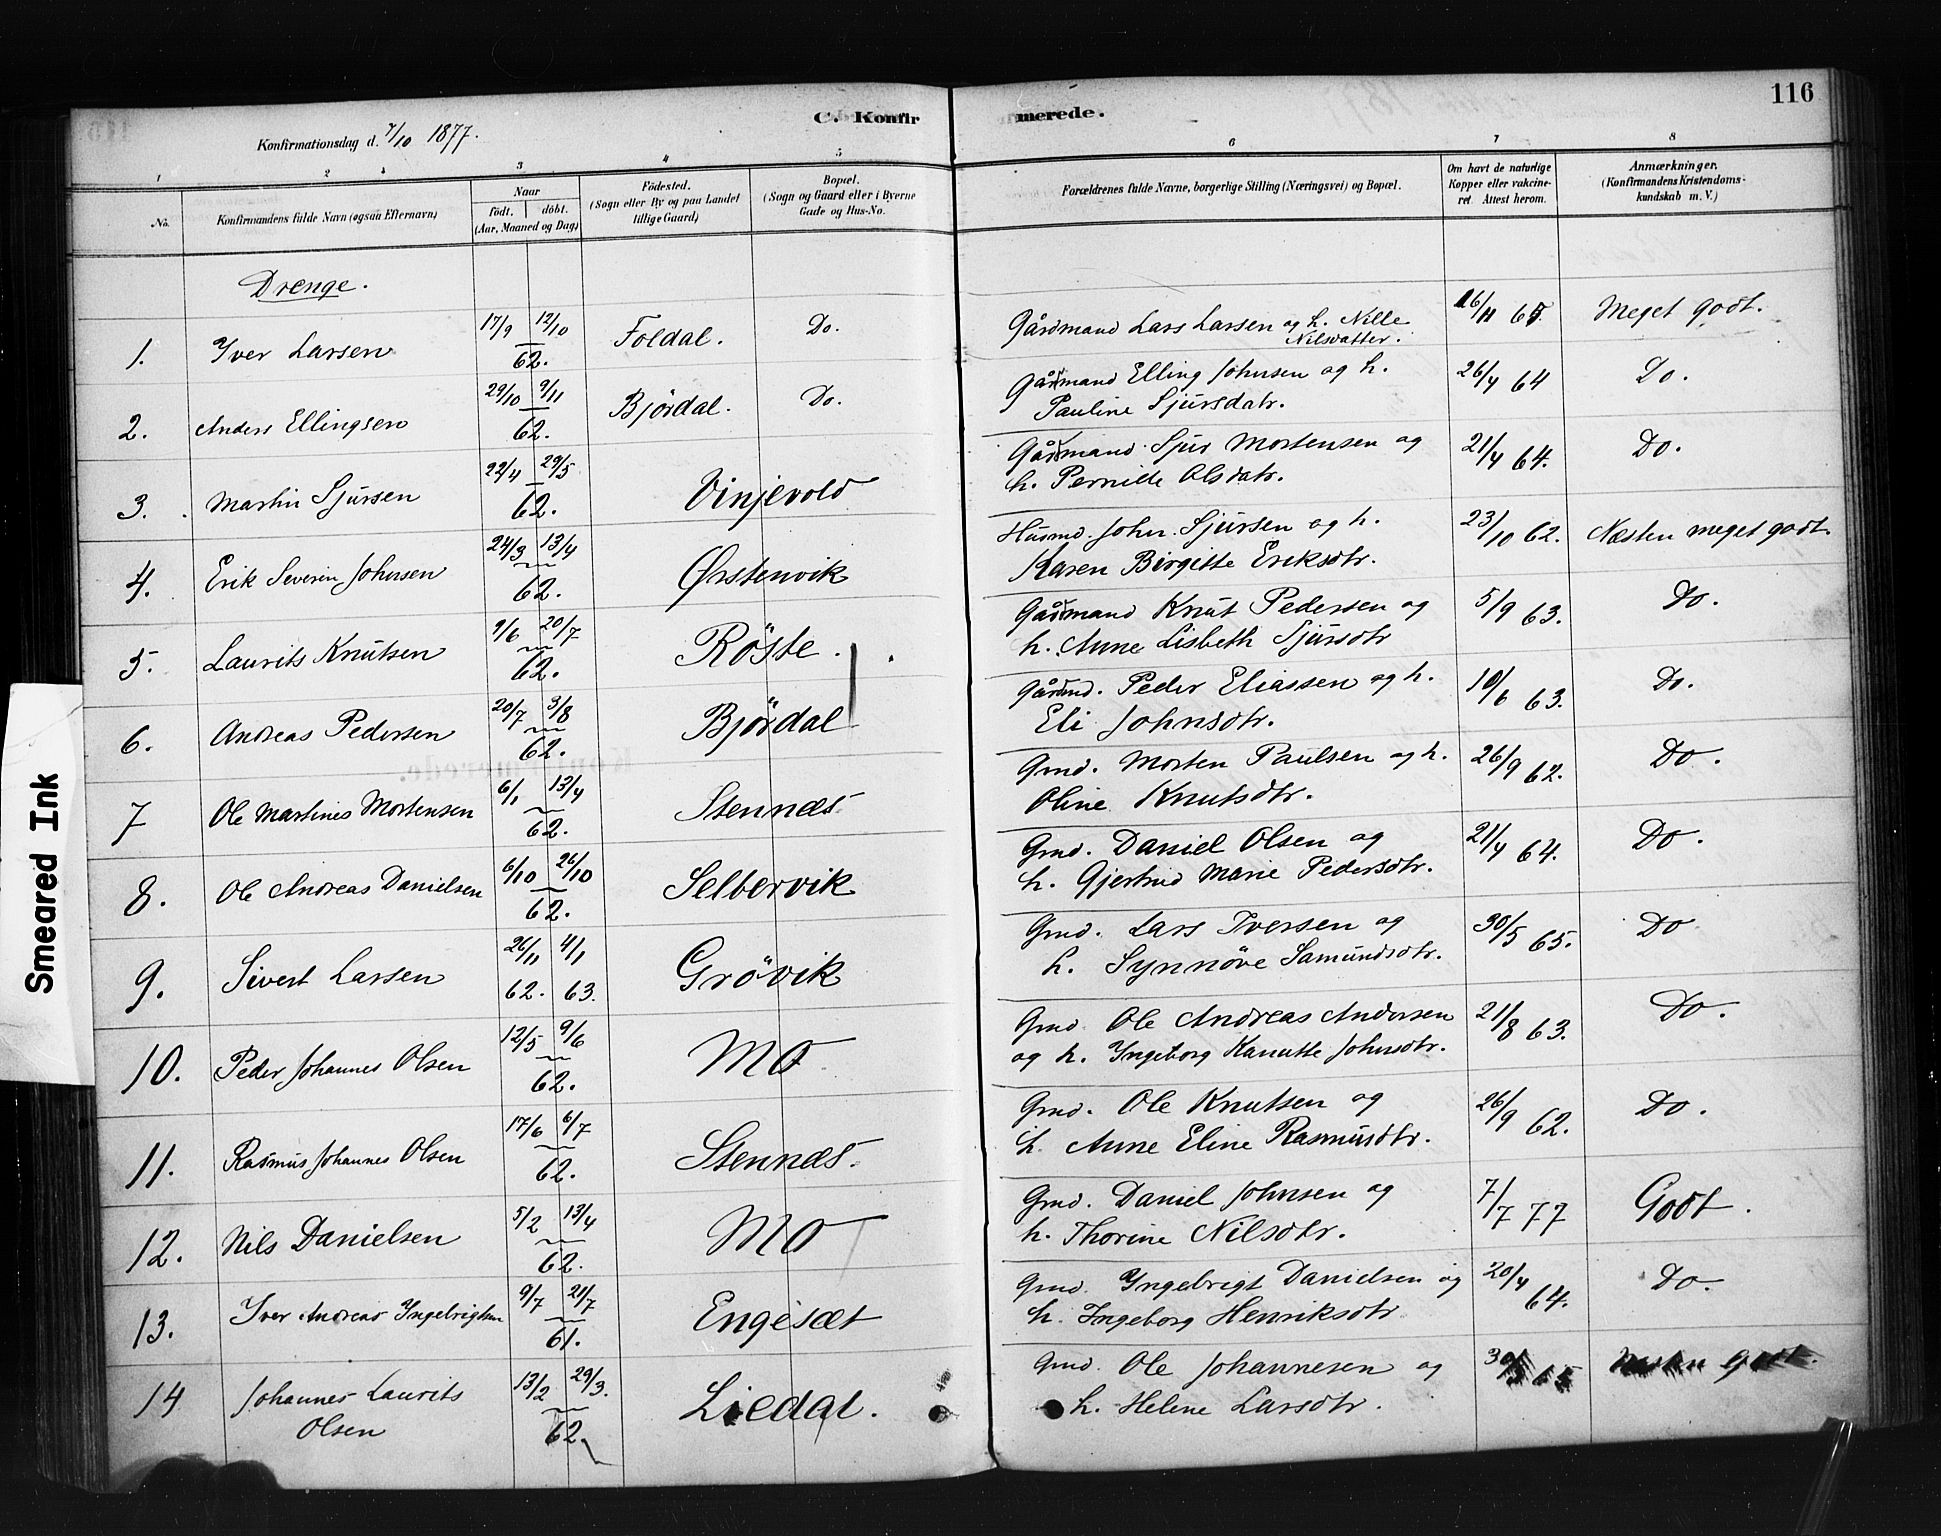 116
C. Konfir merede.
Konfirmationsdag d. 7/10 1877.
1 2 3 4 5 6 7 8
No.
Konfirmandens fulde Navn (ogsaa Efternavn)
Naar
født. døbt.
(Aar, Maaned og Dag)
Fødested.
(Sogn eller By og paa Landet
tillige Gaard)
Bopæl.
(Sogn og Gaard eller i Byerne
Gade og Hus-No.
Forældrenes fulde Navne, borgerlige Stilling (Næringsvei) og Bopæl.
Om havt de naturlige
Kopper eller vakcine-
ret. Attest herom.
Anmærkninger.
(Konfirmandens Kristendoms-
kundskab m. V.)
Drenge.
1. Yver Larsen 17/9 12/10 62. Foldal. Do. Gårdmand Lars Larsen og h. Nille
Nilsdatter. 16/11 65. Meget godt.
2. Anders Ellingsen 29/10 9/11 62. Björdal. Do. Gårdmand Elling Johnsen og h.
Pauline Sjursdatr. 26/4 64 Do.
3. Martin Sjursen 22/4 29/5 62. Vinjevold Gårdmand Sjur Mortensen og
h. Pernille Olsdatr. 21/4 64. Do.
4. Erik Severin Johnsen 24/3 13/4 62. Ørstenvik Husmd. John Sjursen og h.
Karen Birgitte Eriksdtr. 23/10 62. Næsten meget godt.
5. Laurits Knutsen 9/6 20/7 62. Röste. Gårdmand Knut Pedersen og
h. Anne Lisbeth Sjursdtr 5/9 63. Do.
6. Andreas Pedersen 20/7 3/8 62. Björdal Gårdmd. Peder Eliassen og h.
Eli Johnsdtr. 10/6 63. Do.
7 Ole Martines Mortensen 6/1 13/4 62. Stennæs Gmd. Morten Paulsen og h.
Oline Knutsdtr. 26/9 62. Do.
8. Ole Andreas Danielsen 6/10 26/10 62. Selbervik Gmd. Daniel Olsen og
h. Gjertrud Marie Pedersdtr. 21/4 64. Do.
9. Sivert Larsen 26/11 62. 4/1 63. Grövik Gmd. Lars Iversen og
h. Synnöve Samundsdtr. 30/5 65. Do
10. Peder Johannes Olsen 12/5 9/6 62. Mo Gmd. Ole Andreas Andersen
og h. Yngeborg Kanutte Johnsdtr. 21/8 63. Do.
11. Rasmus Johannes Olsen 17/6 6/7 62. Stennæs. Gmd. Ole Knutsen og
h. Anne Eline Rasmusdtr. 26/9 62. Do.
12. Nils Danielsen 5/2 13/4 62. Mo Gmd. Daniel Johnsen og
h. Thorine Nilsdtr. 7/7 77 Godt.
13. Yver Andreas Yngebrigtsen 9/7 21/7 61. Engesæt Gmd. Yngebrigt Danielsen og
h. Ingeborg Henriksdtr 20/4 64. Do.
14 Johannes Laurits
Olsen 13/2 29/3. 62. Liedal. Gmd. Ole Johannesen og
h. Helene Larsdtr. 30/ Godt.
Smeared Ink